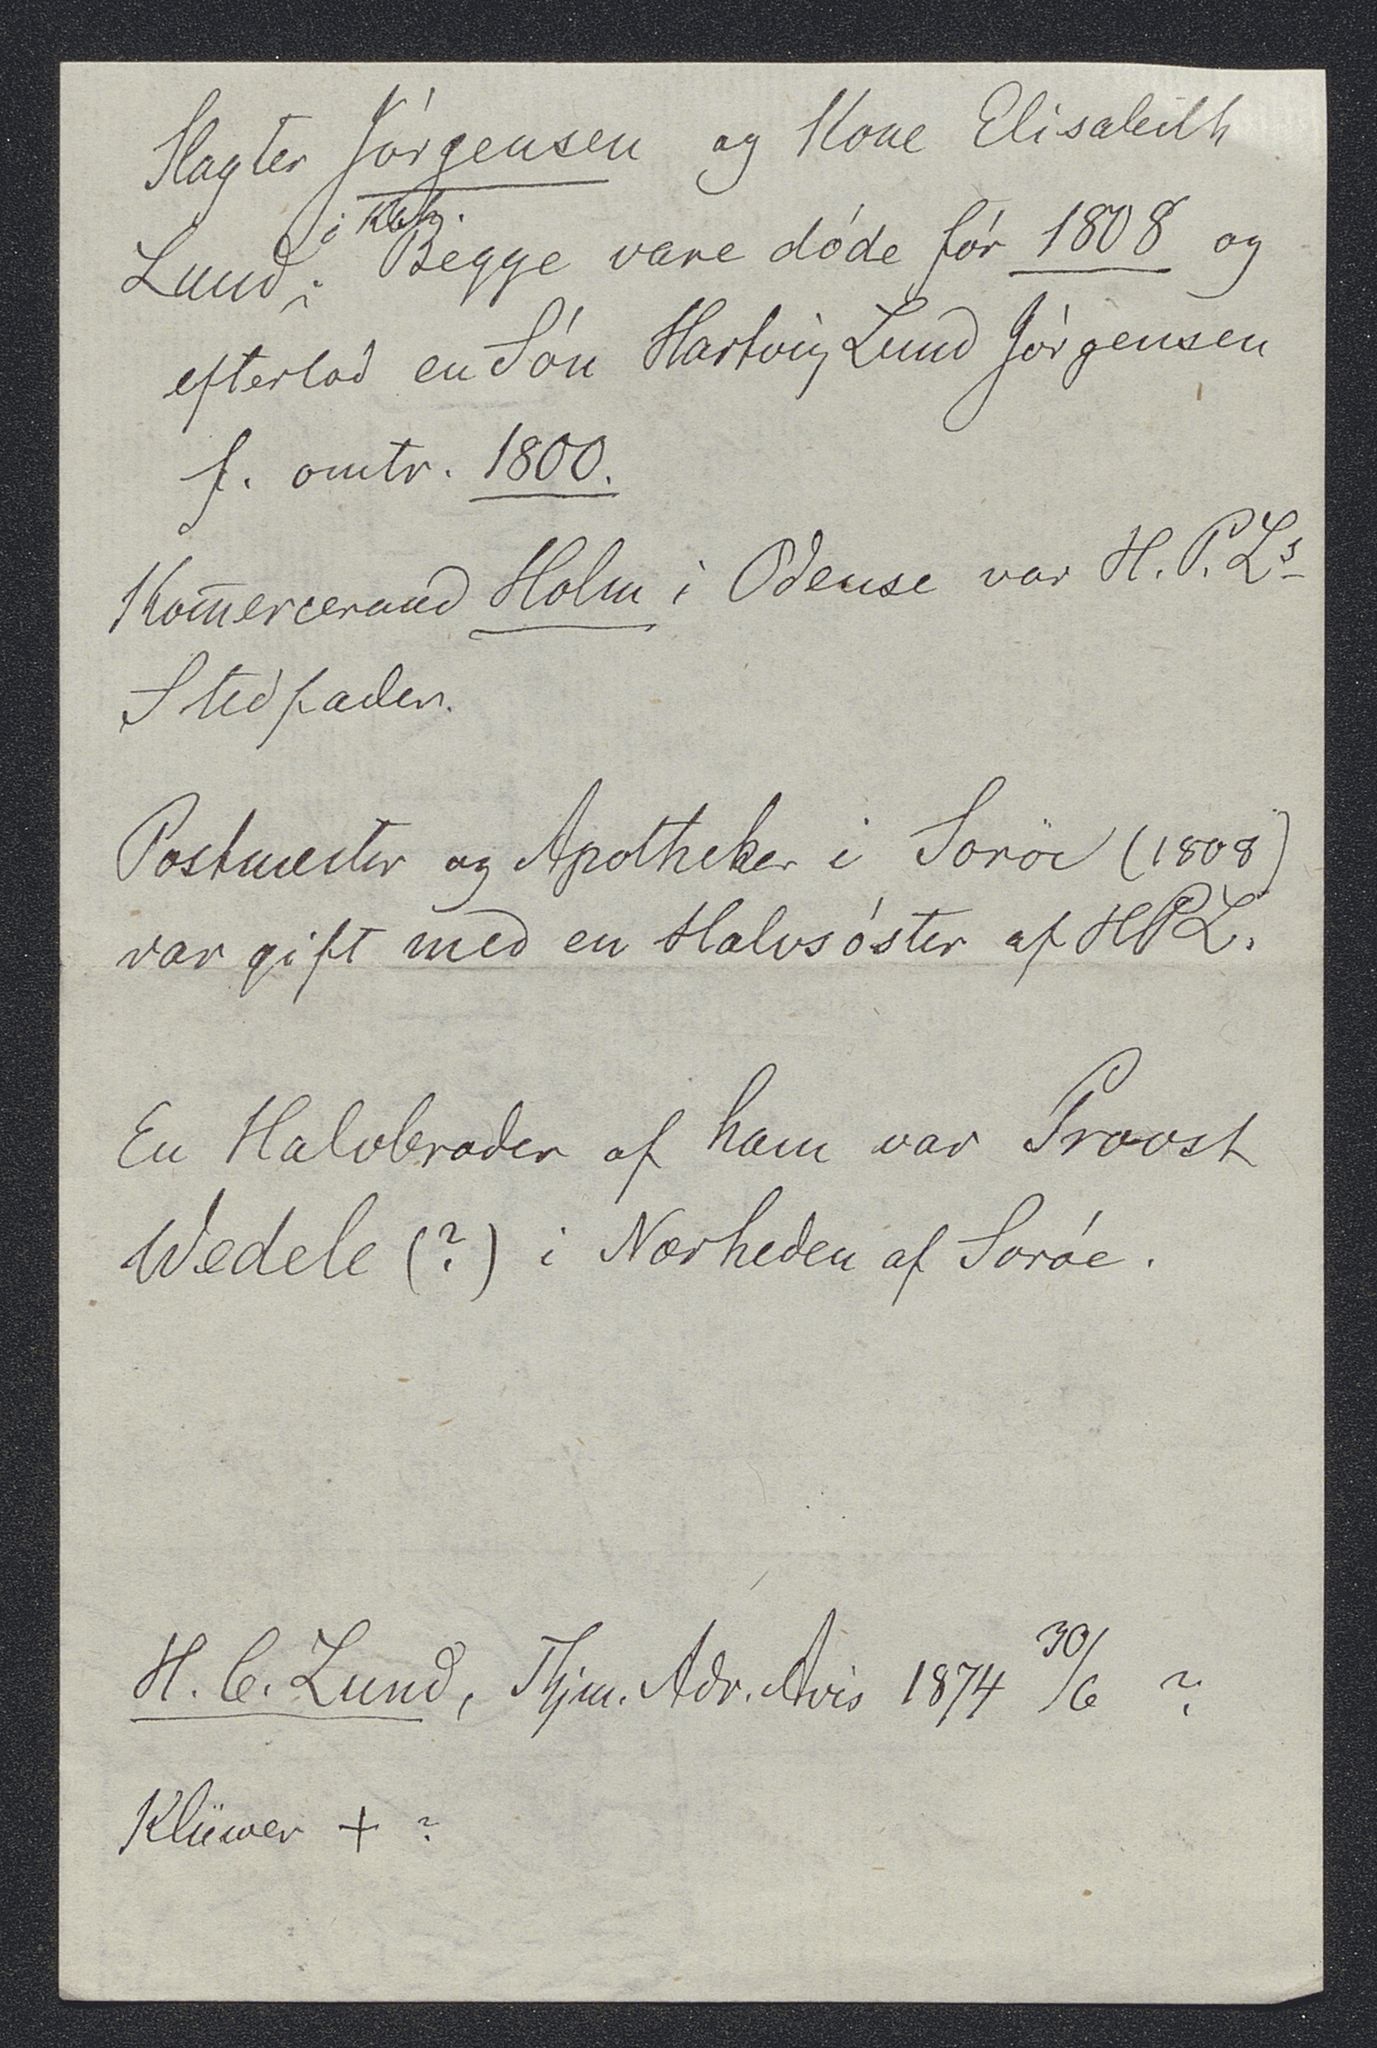 Slagter Jörgensen og Kone Elisabeth
Lund i Kbh. Begge vare døde før 1808 og
efterlod en Søn Hartvig Lund Jörgensen
f. omtr. 1800.
Kom̅erceraad Holm i Odense var H. P. Ls
Stedfader.
Postmester og Apotheker i Sorøe (1808)
var gift med en Halvsøster af HPL.
En Halvbroder af ham var Provst
Wedele (?) i Nærheden af Sorøe.
H. C. Lund, Thjm. Adr. Avis 1874 30/6 ?
Klüwer + ?